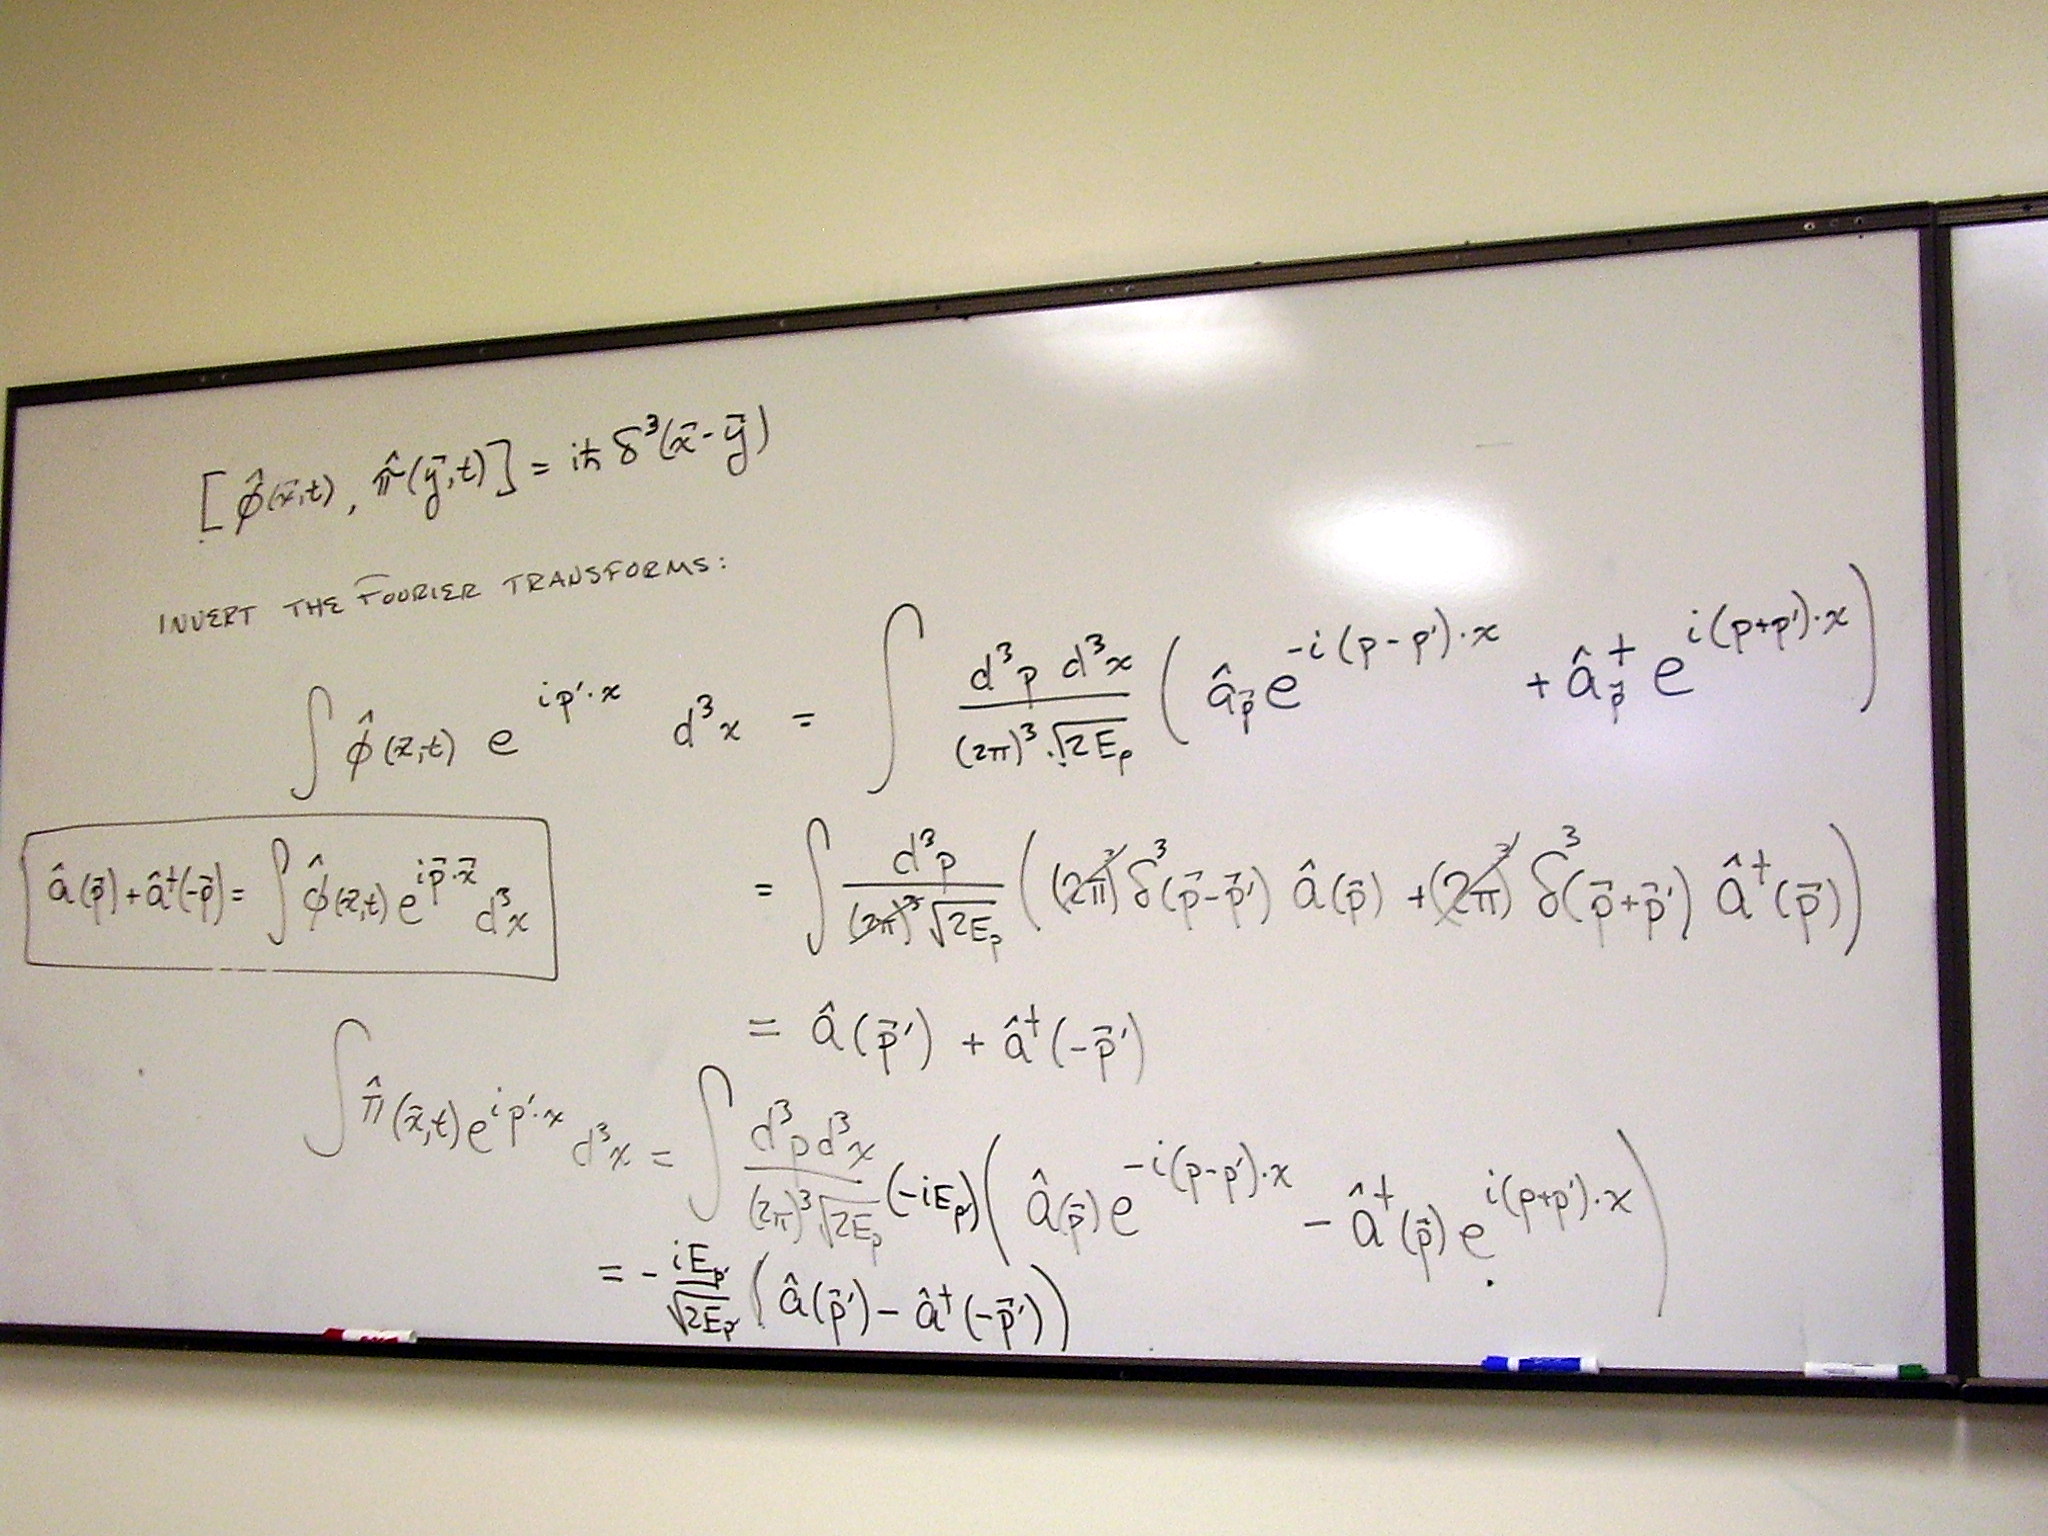 [φ̂(x⃗,t), π̂(y⃗,t)] = iħ δ³(x⃗-y⃗)
INVERT THE FOURIER TRANSFORMS:
∫ φ̂(x⃗,t) e^{ip'·x} d³x = ∫ d³p d³x / ((2π)³·√(2E_p)) (â_p⃗ e^{-i(p-p')·x} + â†_p⃗ e^{i(p+p')·x})
â(p⃗)+â†(-p⃗) = ∫ φ̂(x⃗,t) e^{ip⃗·x⃗} d³x
= ∫ d³p / ((2π)³ √(2E_p)) ((2π)³ δ³(p⃗-p⃗') â(p⃗) + (2π)³ δ³(p⃗+p⃗') â†(p⃗))
= â(p⃗') + â†(-p⃗')
∫ π̂(x⃗,t) e^{ip'·x} d³x = ∫ d³p d³x / ((2π)³ √(2E_p)) (-iE_p) (â(p⃗) e^{-i(p-p')·x} - â†(p⃗) e^{i(p+p')·x})
= - iE_p' / √(2E_p') (â(p⃗') - â†(-p⃗'))